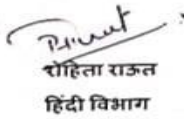 रोहिता राऊत
हिंदी विभाग